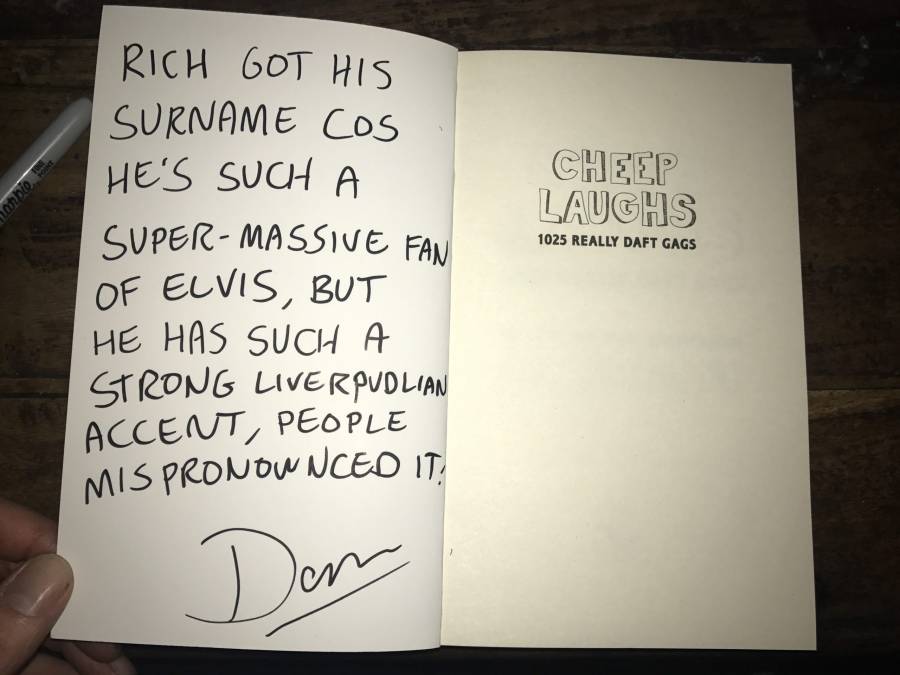 RICH GOT HIS
SURNAME COS
HE'S SUCH A
SUPER-MASSIVE FAN
OF ELVIS, BUT
HE HAS SUCH A
STRONG LIVERPUDLIAN
ACCENT, PEOPLE
MISPRONOWNCED IT!
Dan
CHEEP
LAUGHS
1025 REALLY DAFT GAGS